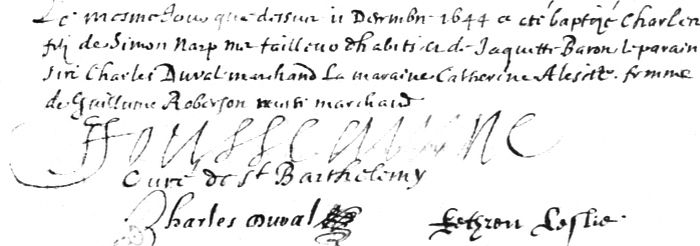 Le mesme Jour que dessus 11 Decembre 1644 a eté baptizé Charles
filz de Simon Narp mr tailleur dhabitz et de Jaquette Baron le parain
sire Charles Duval marchand La maraine Catherine Alesite femme
de Guillaume Roberson marchand
Curé de St Barthelemy
Charles Duval Kethren Leslie